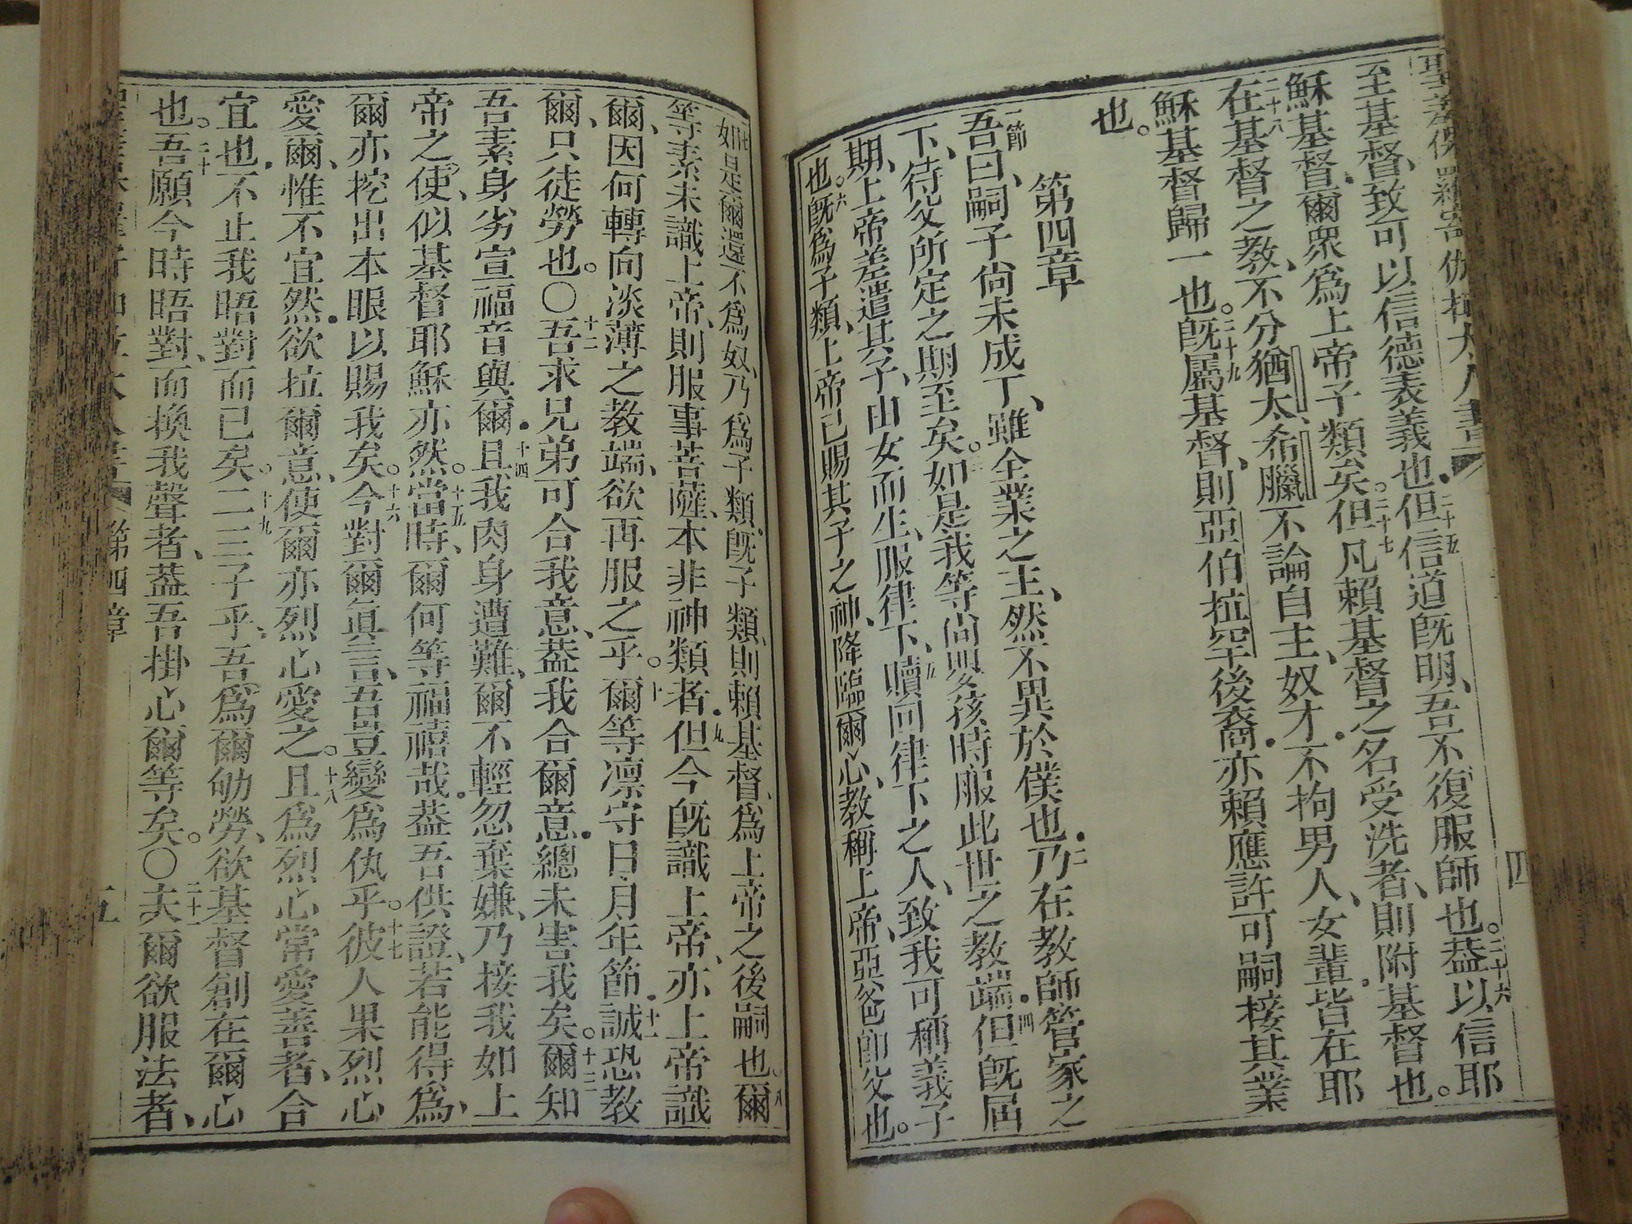 聖差保羅寄伽拉太人書
四
至基督、致可以信德表義也。二十五但信道既明、吾不復服師也。二十六蓋以信耶
穌基督、爾眾為上帝子類矣。二十七但凡賴基督之名受洗者、則附基督也。
二十八在基督之教、不分猶太、希臘、不論自主、奴才、不拘男人、女輩、皆在耶
穌基督歸一也。二十九既屬基督、則亞伯拉罕後裔、亦賴應許可嗣接其業
也。
第四章
一節吾曰、嗣子尚未成丁、雖全業之主、然不異於僕也。二乃在教師管家之
下、待父所定之期至矣。三如是我等尚嬰孩時、服此世之教端。四但既屆
期、上帝差遣其子、由女而生、服律下、五贖回律下之人、致我可稱義子
也。六既為子類、上帝已賜其子之神、降臨爾心、教稱上帝、亞爸即父也。
七如是爾還不為奴、乃為子類、既子類、則賴基督、為上帝之後嗣也。八爾
等素未識上帝、則服事菩薩、本非神類者。九但今既識上帝、亦上帝識
爾、因何轉向淡薄之教端、欲再服之乎。十爾等凛守日月年節、十一誠恐教
爾、只徒勞也。〇十二吾求兄弟可合我意、蓋我合爾意、總未害我矣。十三爾知
吾素身劣、宣福音與爾。十四且我肉身遭難、爾不輕忽棄嫌、乃接我如上
帝之使、似基督耶穌亦然。十五當時、爾何等福禧哉。蓋吾供證、若能得為、
爾亦挖出本眼以賜我矣。十六今對爾真言、吾豈變為仇乎。十七彼人果烈心
愛爾、惟不宜然。欲拉爾意、使爾亦烈心愛之。十八且為烈心常愛善者、合
宜也、不止我晤對而已矣。十九二三子乎、吾為爾劬勞、欲基督創在爾心
也。二十吾願今時晤對、而換我聲者、蓋吾掛心爾等矣。〇二十一夫爾欲服法者、
第四章
五